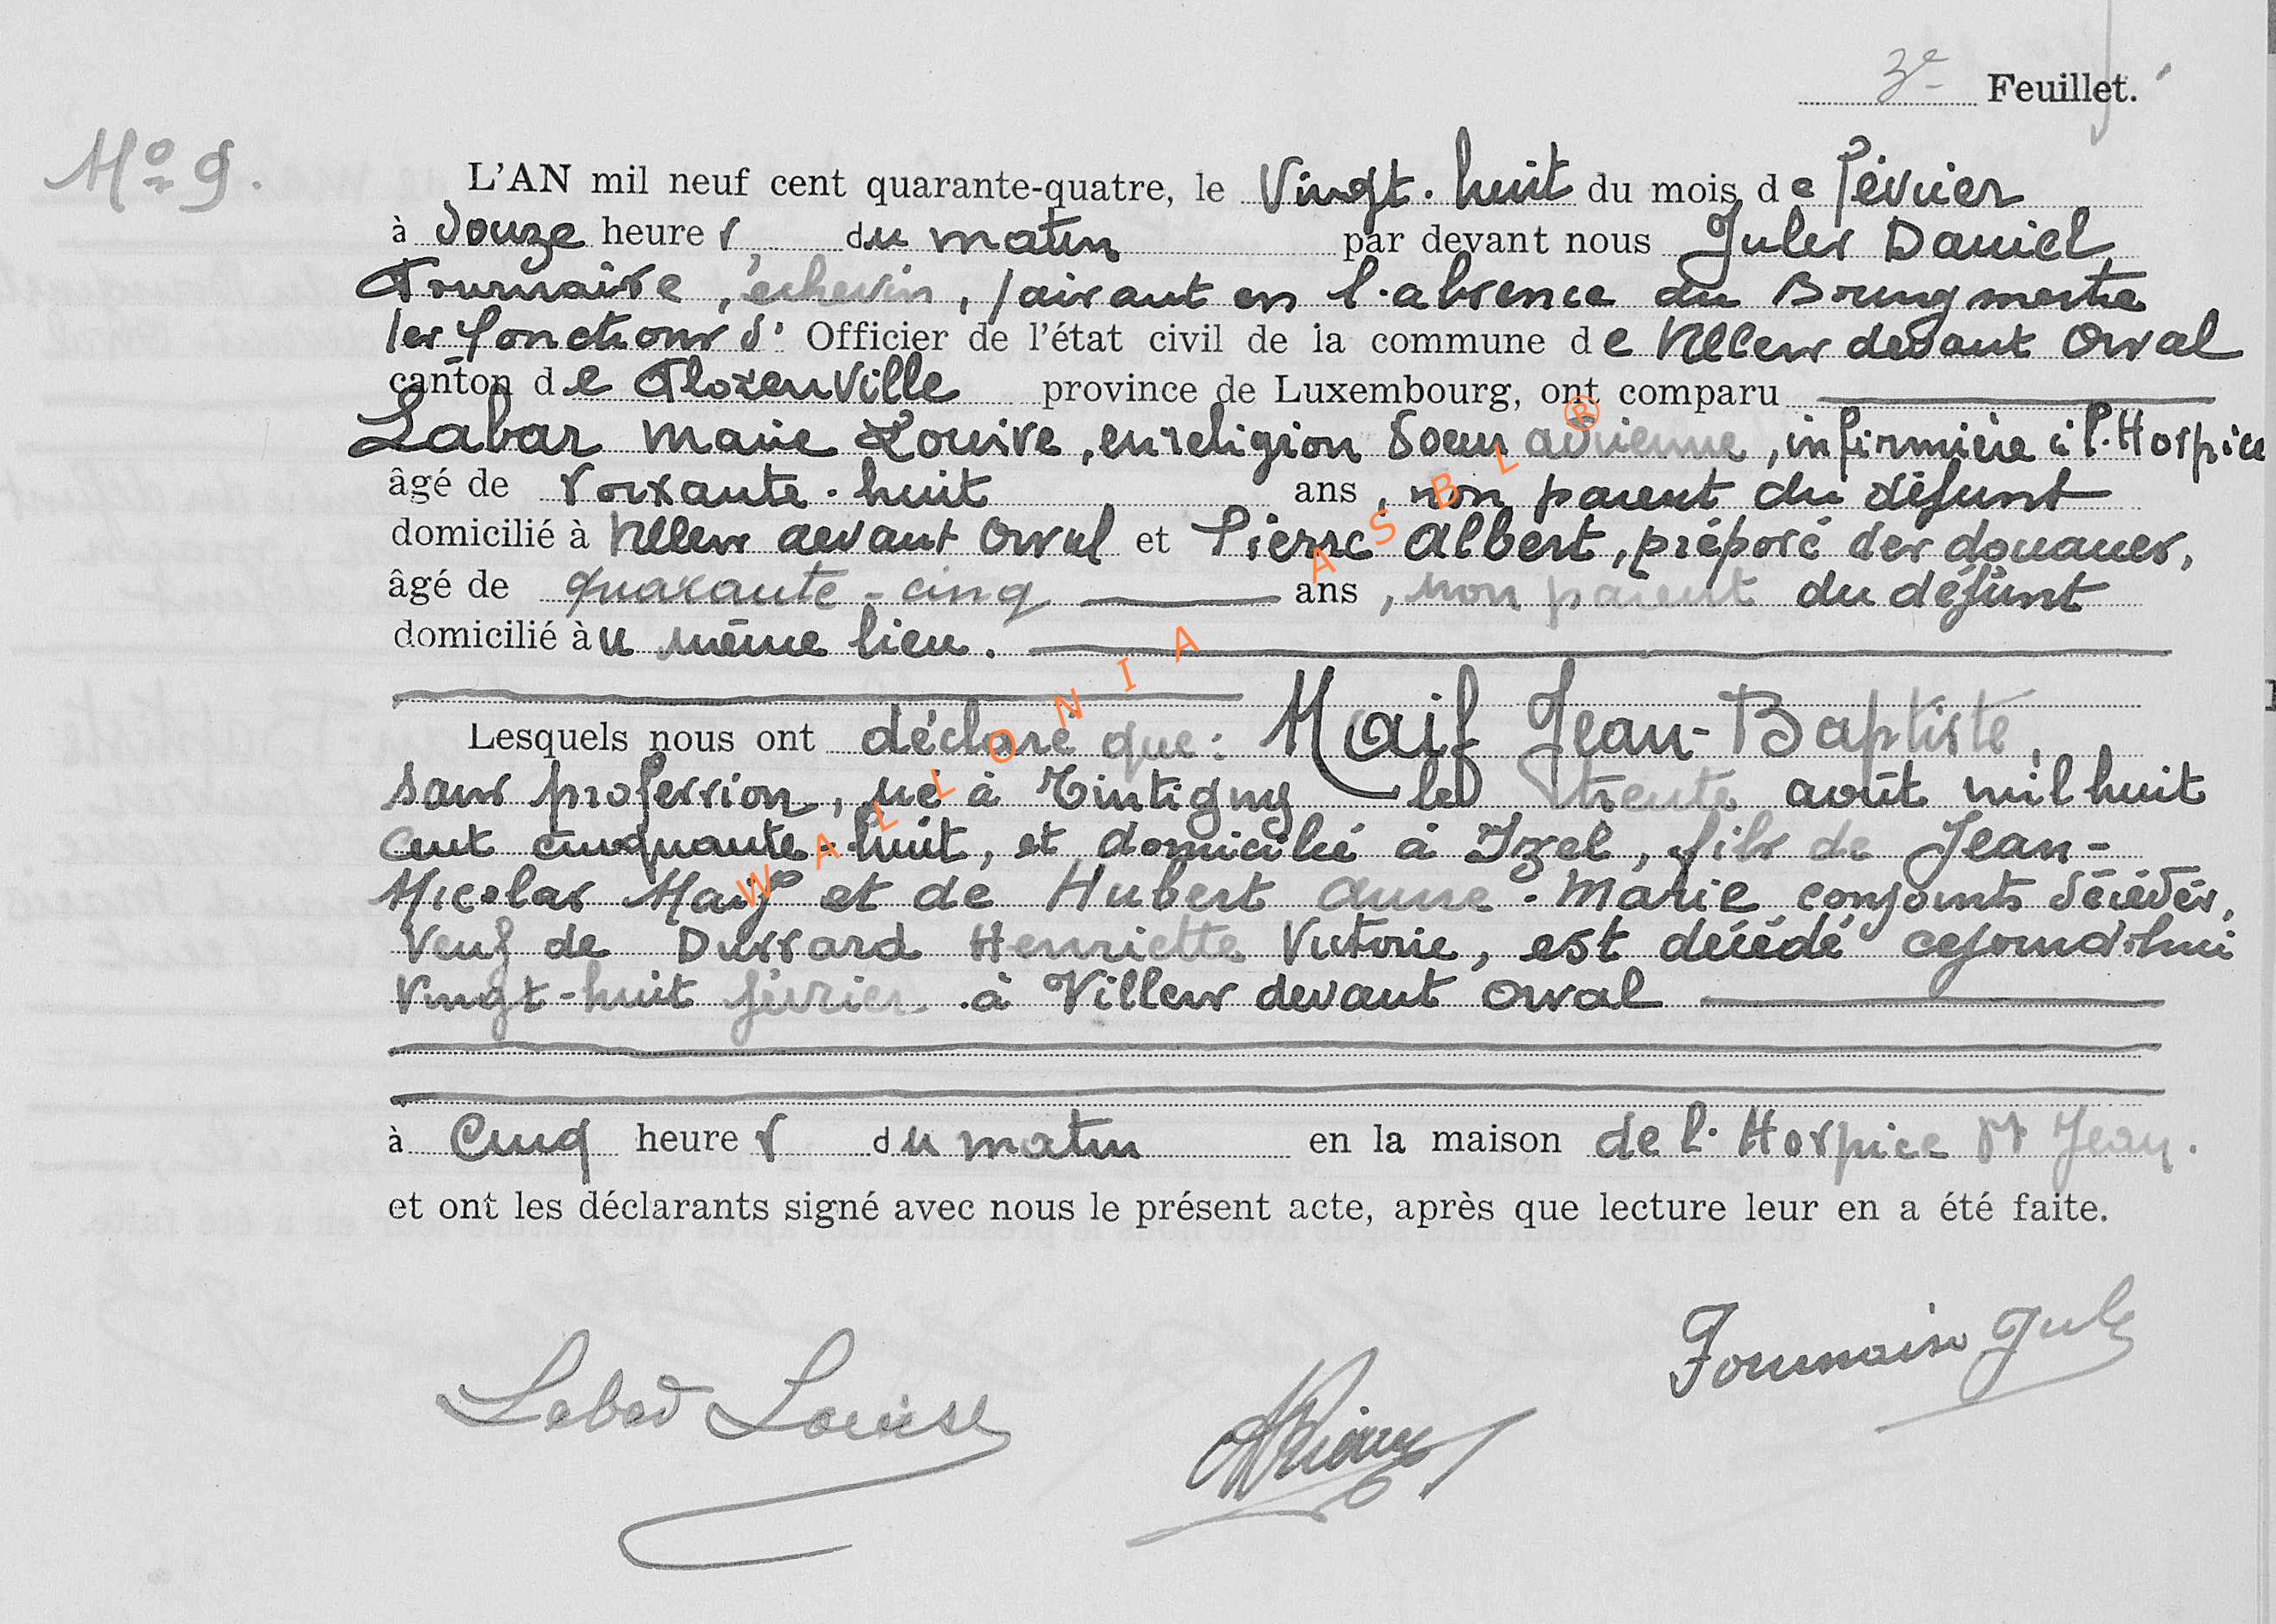 3e Feuillet.
No 9.
L'AN mil neuf cent quarante-quatre, le Vingt-huit du mois de février
à douze heures du matin par devant nous Jules Daniel
Fournaise, échevin, faisant en l'absence du Bourgmestre
les fonctions d' Officier de l'état civil de la commune de Villers devant Orval
canton de Florenville province de Luxembourg, ont comparu
Labar Marie Louise, en religion Soeur Adrienne, infirmière à l'Hospice
âgé de soixante-huit ans, non parent du défunt
domicilié à Villers devant Orval et Pierre Albert, préposé des douanes,
âgé de quarante-cinq ans, non parent du défunt
domicilié au même lieu.
Lesquels nous ont déclaré que: Maif Jean-Baptiste,
sans profession, né à Tintigny le trente août mil huit
cent cinquante-huit, et domicilié à Izel, fils de Jean-
Nicolas Maif et de Hubert Anne-Marie conjoints décédés,
Veuf de Dussard Henriette Victorie, est décédé cejourd'hui
Vingt-huit février à Villers devant Orval
à Cinq heures du matin en la maison de l'Hospice St Jean.
et ont les déclarants signé avec nous le présent acte, après que lecture leur en a été faite.
Labar Louise
Fournaise Jules
WALLONIA ASBL ®